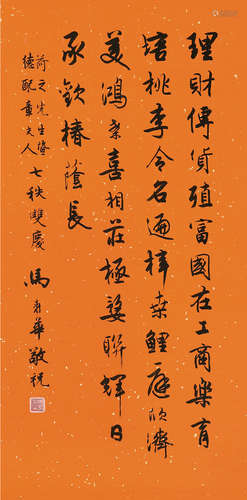 理財傳貨殖富國在工商樂育
培桃李令名遍梓桑鯉庭欣濟
美鴻案喜相莊極婺聯輝日
承歡椿蔭長
荷之先生暨
德配章夫人七秩雙慶
馬壽華敬祝